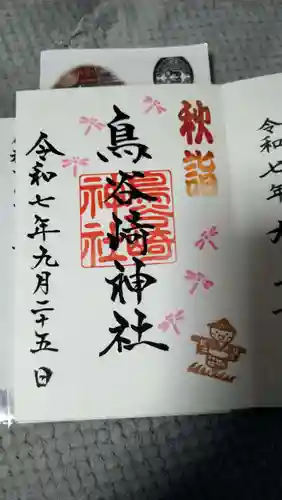 秋詣
鳥谷崎神社
鳥谷崎
神社
令和七年九月二十五日
令和七年九